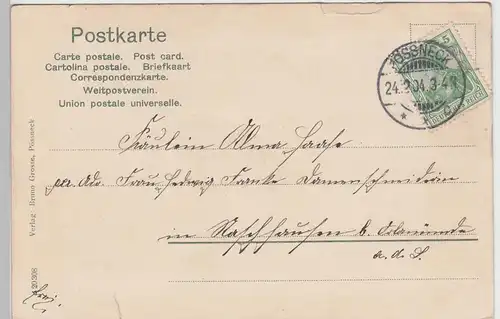 Postkarte
Carte postale. Post card.
Cartolina postale. Briefkaart
Correspondenzkarte.
Weltpostverein.
Union postale universelle.
PÖSSNECK
24.3.04. 3-4N
DEUTSCHES REICH
Fräulein Alma Haase
per. Adr. Frau Hedwig Franke Damenschneiderin
in Naschhausen b. Orlamünde
a. d. S.
frei.
Verlag Bruno Grosse, Pössneck
A 20308